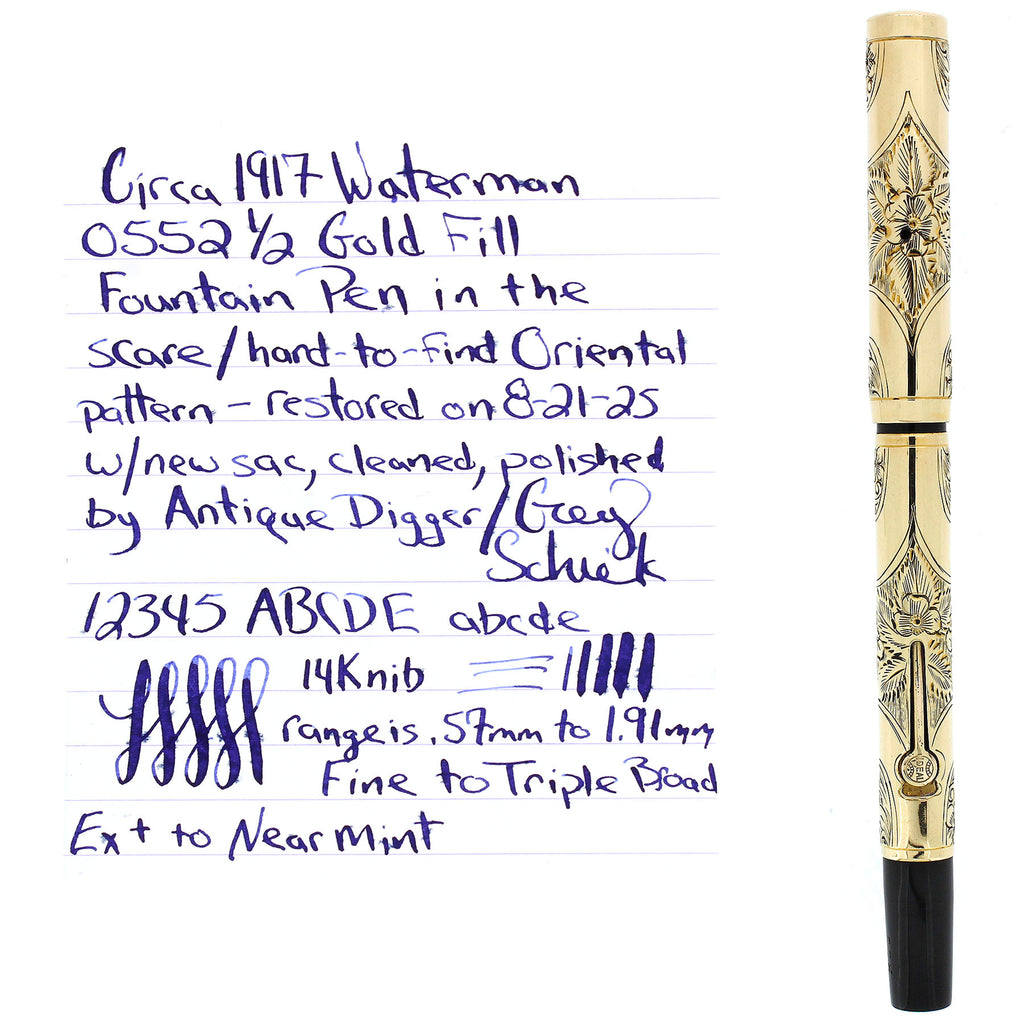 Circa 1917 Waterman
0552 1/2 Gold Fill
Fountain Pen in the
scare/hard-to-find Oriental
pattern - restored on 8-21-25
w/new sac, cleaned, polished
by Antique Digger/Greg
Schiek
12345 ABCDE abcde
14K nib
range is .57mm to 1.91mm
Fine to Triple Broad
Ex+ to Near Mint
IDEAL